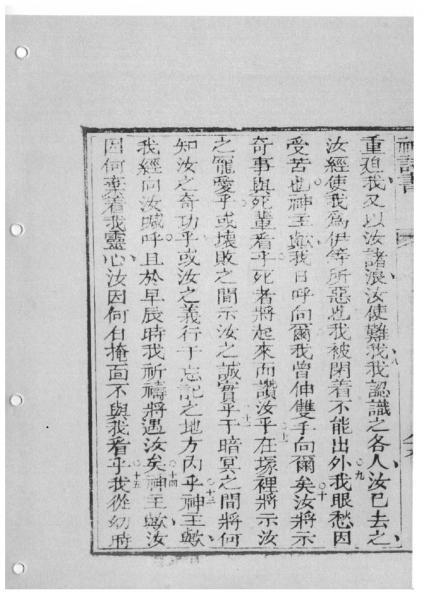 神詩書
重廹我又以汝諸浪汝使難我我認識之各人汝已去之
汝經使我為伊等所惡也我被閉着不能出外我眼愁因
受苦也神主歟我日呼向爾我曾伸雙手向爾矣汝將示
奇事與死輩看乎死者將起來而讚汝乎在塚裡將示汝
之寵愛乎或壞敗之間示汝之誠實乎于暗冥之間將何
知汝之奇功乎或汝之義行于忘記之地方內乎神主歟
我經向汝喊呼且於早辰時我祈禱將遇汝矣神主歟汝
因何棄着我靈心汝因何自掩面不與我看乎我從幼時